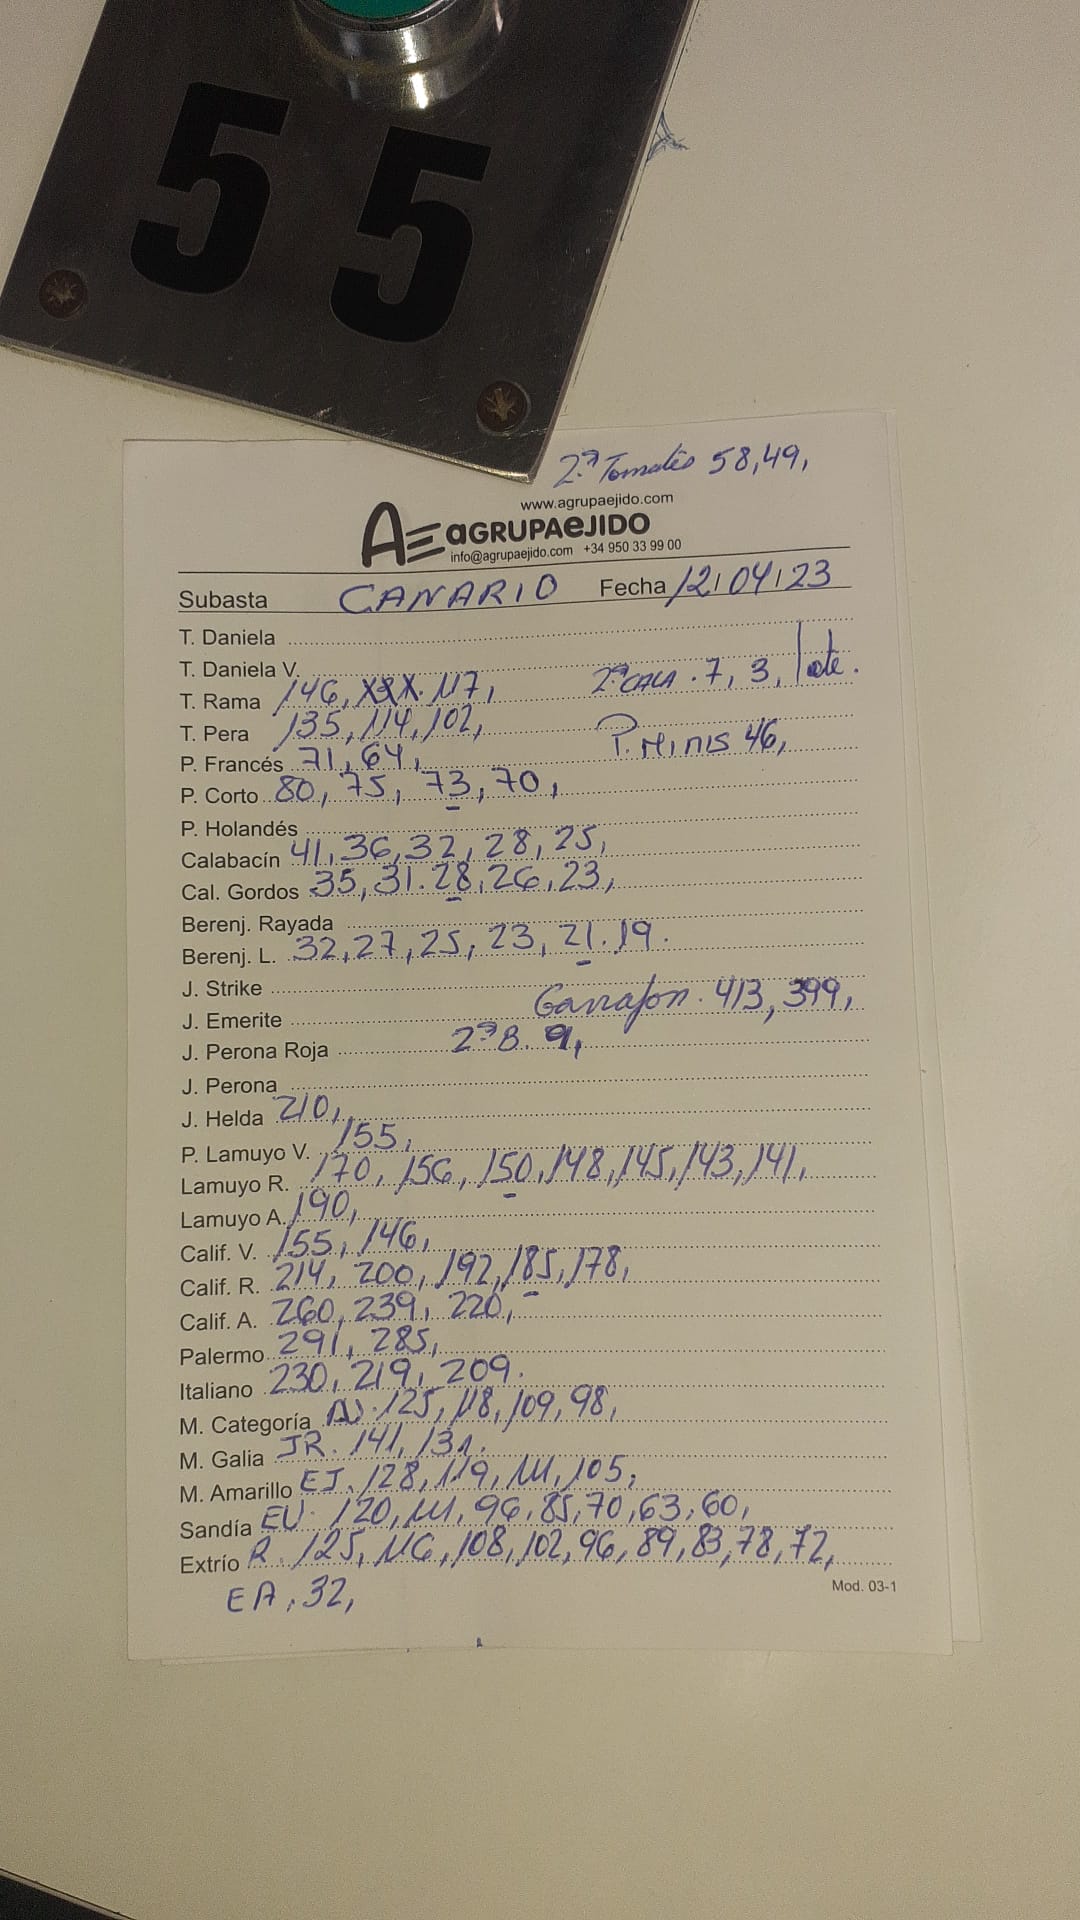 55
2ª Tomates 58,49,
www.agrupaejido.com
AE aGRUPAeJIDO
info@agrupaejido.com +34 950 33 99 00
Subasta CANARIO Fecha 12/04/23
T. Daniela
T. Daniela V.
T. Rama 146, 117, 2ª CALA . 7, 3, lote.
T. Pera 135, 114, 102,
P. Francés 71, 64, P. Minis 46,
P. Corto 80, 75, 73, 70,
P. Holandés
Calabacín 41, 36, 32, 28, 25,
Cal. Gordos 35, 31. 28, 26, 23,
Berenj. Rayada
Berenj. L. 32, 27, 25, 23, 21. 19.
J. Strike
J. Emerite Garrafon. 413, 399,
J. Perona Roja 2ª B. 9,
J. Perona
J. Helda 210,
P. Lamuyo V. 155,
Lamuyo R. 170, 156, 150, 148, 145, 143, 141,
Lamuyo A. 190,
Calif. V. 155, 146,
Calif. R. 214, 200, 192, 185, 178,
Calif. A. 260, 239, 220,
Palermo 291, 285,
Italiano 230, 219, 209.
M. Categoría 125, 118, 109, 98,
M. Galia JR. 141, 131.
M. Amarillo EJ. 128, 119, 111, 105,
Sandía EU. 120, 111, 96, 85, 70, 63, 60,
Extrío R. 125, 116, 108, 102, 96, 89, 83, 78, 72,
EA. 32,
Mod. 03-1